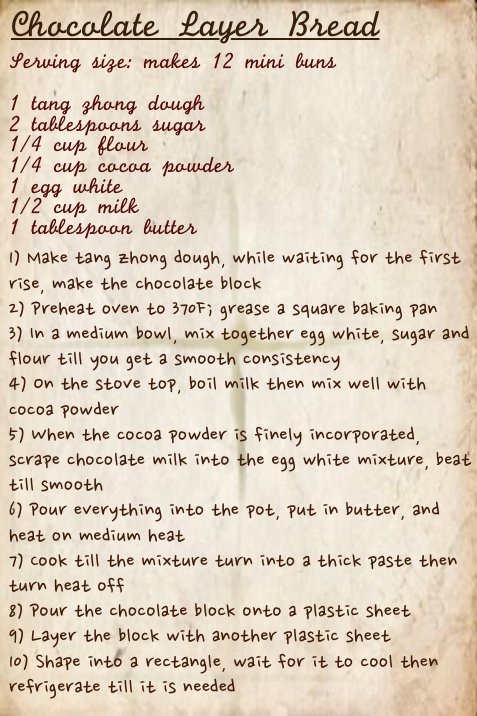 Chocolate Layer Bread
Serving size: makes 12 mini buns
1 tang zhong dough
2 tablespoons sugar
1/4 cup flour
1/4 cup cocoa powder
1 egg white
1/2 cup milk
1 tablespoon butter
1) Make tang zhong dough, while waiting for the first
rise, make the chocolate block
2) Preheat oven to 370F; grease a square baking pan
3) In a medium bowl, mix together egg white, sugar and
flour till you get a smooth consistency
4) On the stove top, boil milk then mix well with
cocoa powder
5) When the cocoa powder is finely incorporated,
scrape chocolate milk into the egg white mixture, beat
till smooth
6) Pour everything into the pot, put in butter, and
heat on medium heat
7) Cook till the mixture turn into a thick paste then
turn heat off
8) Pour the chocolate block onto a plastic sheet
9) Layer the block with another plastic sheet
10) Shape into a rectangle, wait for it to cool then
refrigerate till it is needed